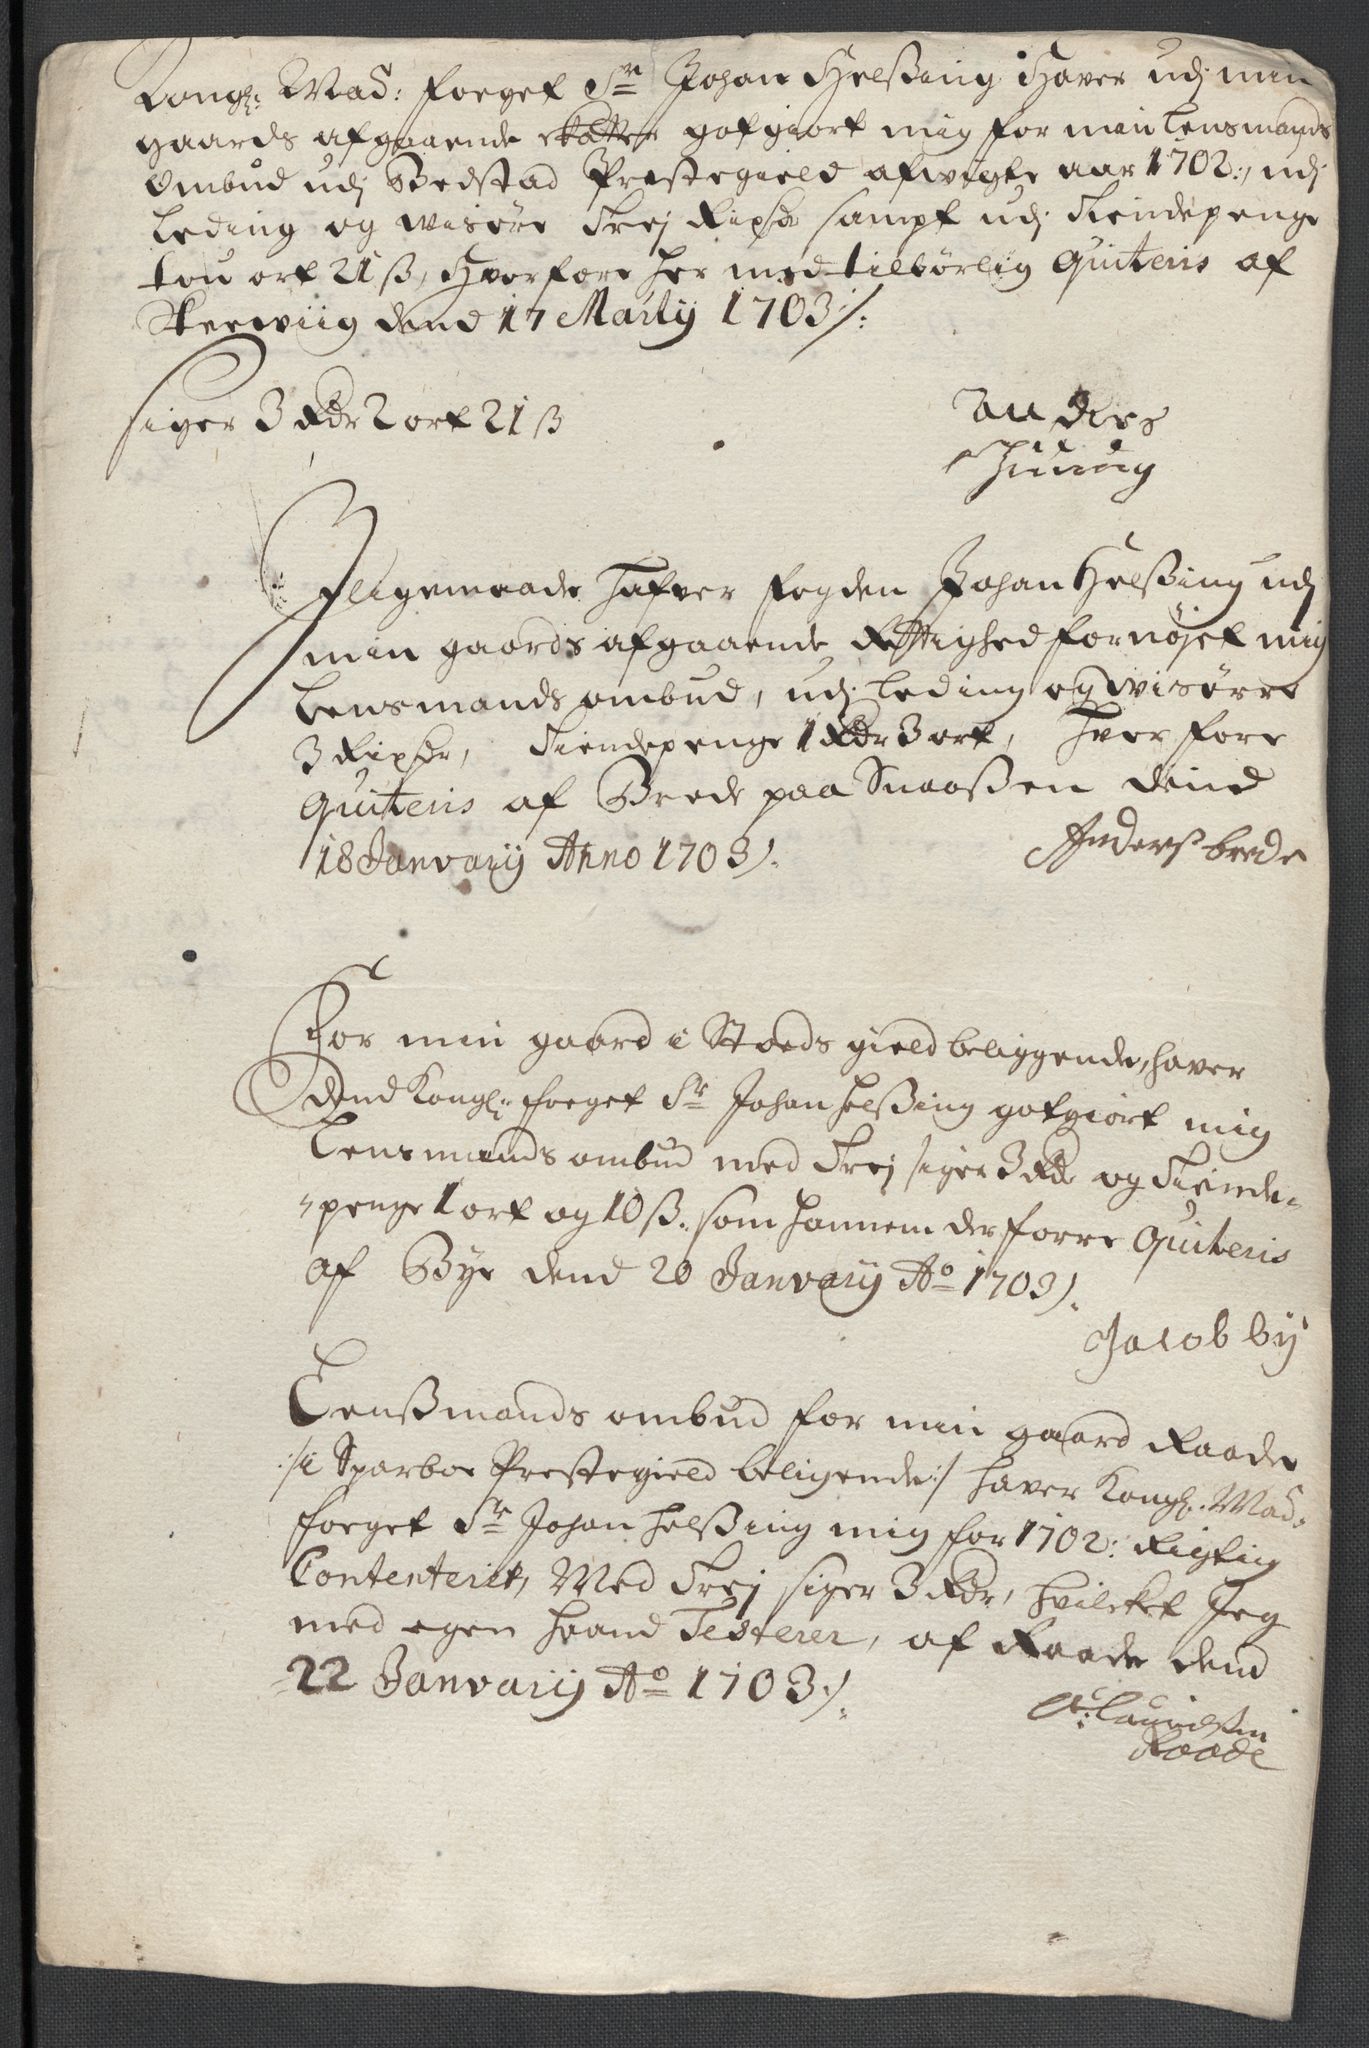 Kongl: May: foeget Sr Johan Helßing Hawer udj min
gaards afgaaende skatter gotgiort mig for min Lensmands
Ombud udj Bedstad Prestegield afvigte aar 1702:, udj
Leding og wisöre Trej Rixdr sampt udj Tiendepenge
tou ort 21 ß, Hvorfore her med tilbörlig Quiteris af
dend 17 Martij 1703 ./:
siger 3 Rdr 2 ort 21 ß
Anders
Jligemaade Hafver fogden Johan Helßing udj
min gaards afgaaende Rettighed fornöjet mig
Lensmands ombud, udj leding og wisörre
3 Rixdr, Tiendepenge 1 Rdr 3 ort, Hvorfore
Quiteris af Brede paa Snaaßen dend
18 Januarij Anno 1703 ./.
Anderß brede
For min gaard i Stoeds gield beliggende, haver
dend Kongl: foeget Sr Johan helßing gotgiört mig
Lensmands ombud med Trej siger 3 Rdr og Tiende-
penge 1 ort og 10 ß. som hannem derforre Quiteris
af Bye dend 20 Januarij Ao 1703 ./.
Jacob by
Lenßmands ombud for min gaard Raade
:/i Sparboe Prestegield beligende:/ haver Kongl: May:
foeget Sr Johan helßing mig for 1702: Rigtig
Contenterit, Med Trej siger 3 Rdr, hvilcket Jeg
med egen haand Testerer, af Raade dend
22 Januarij Ao 1703 ./.
A: Lauridsen
Raade